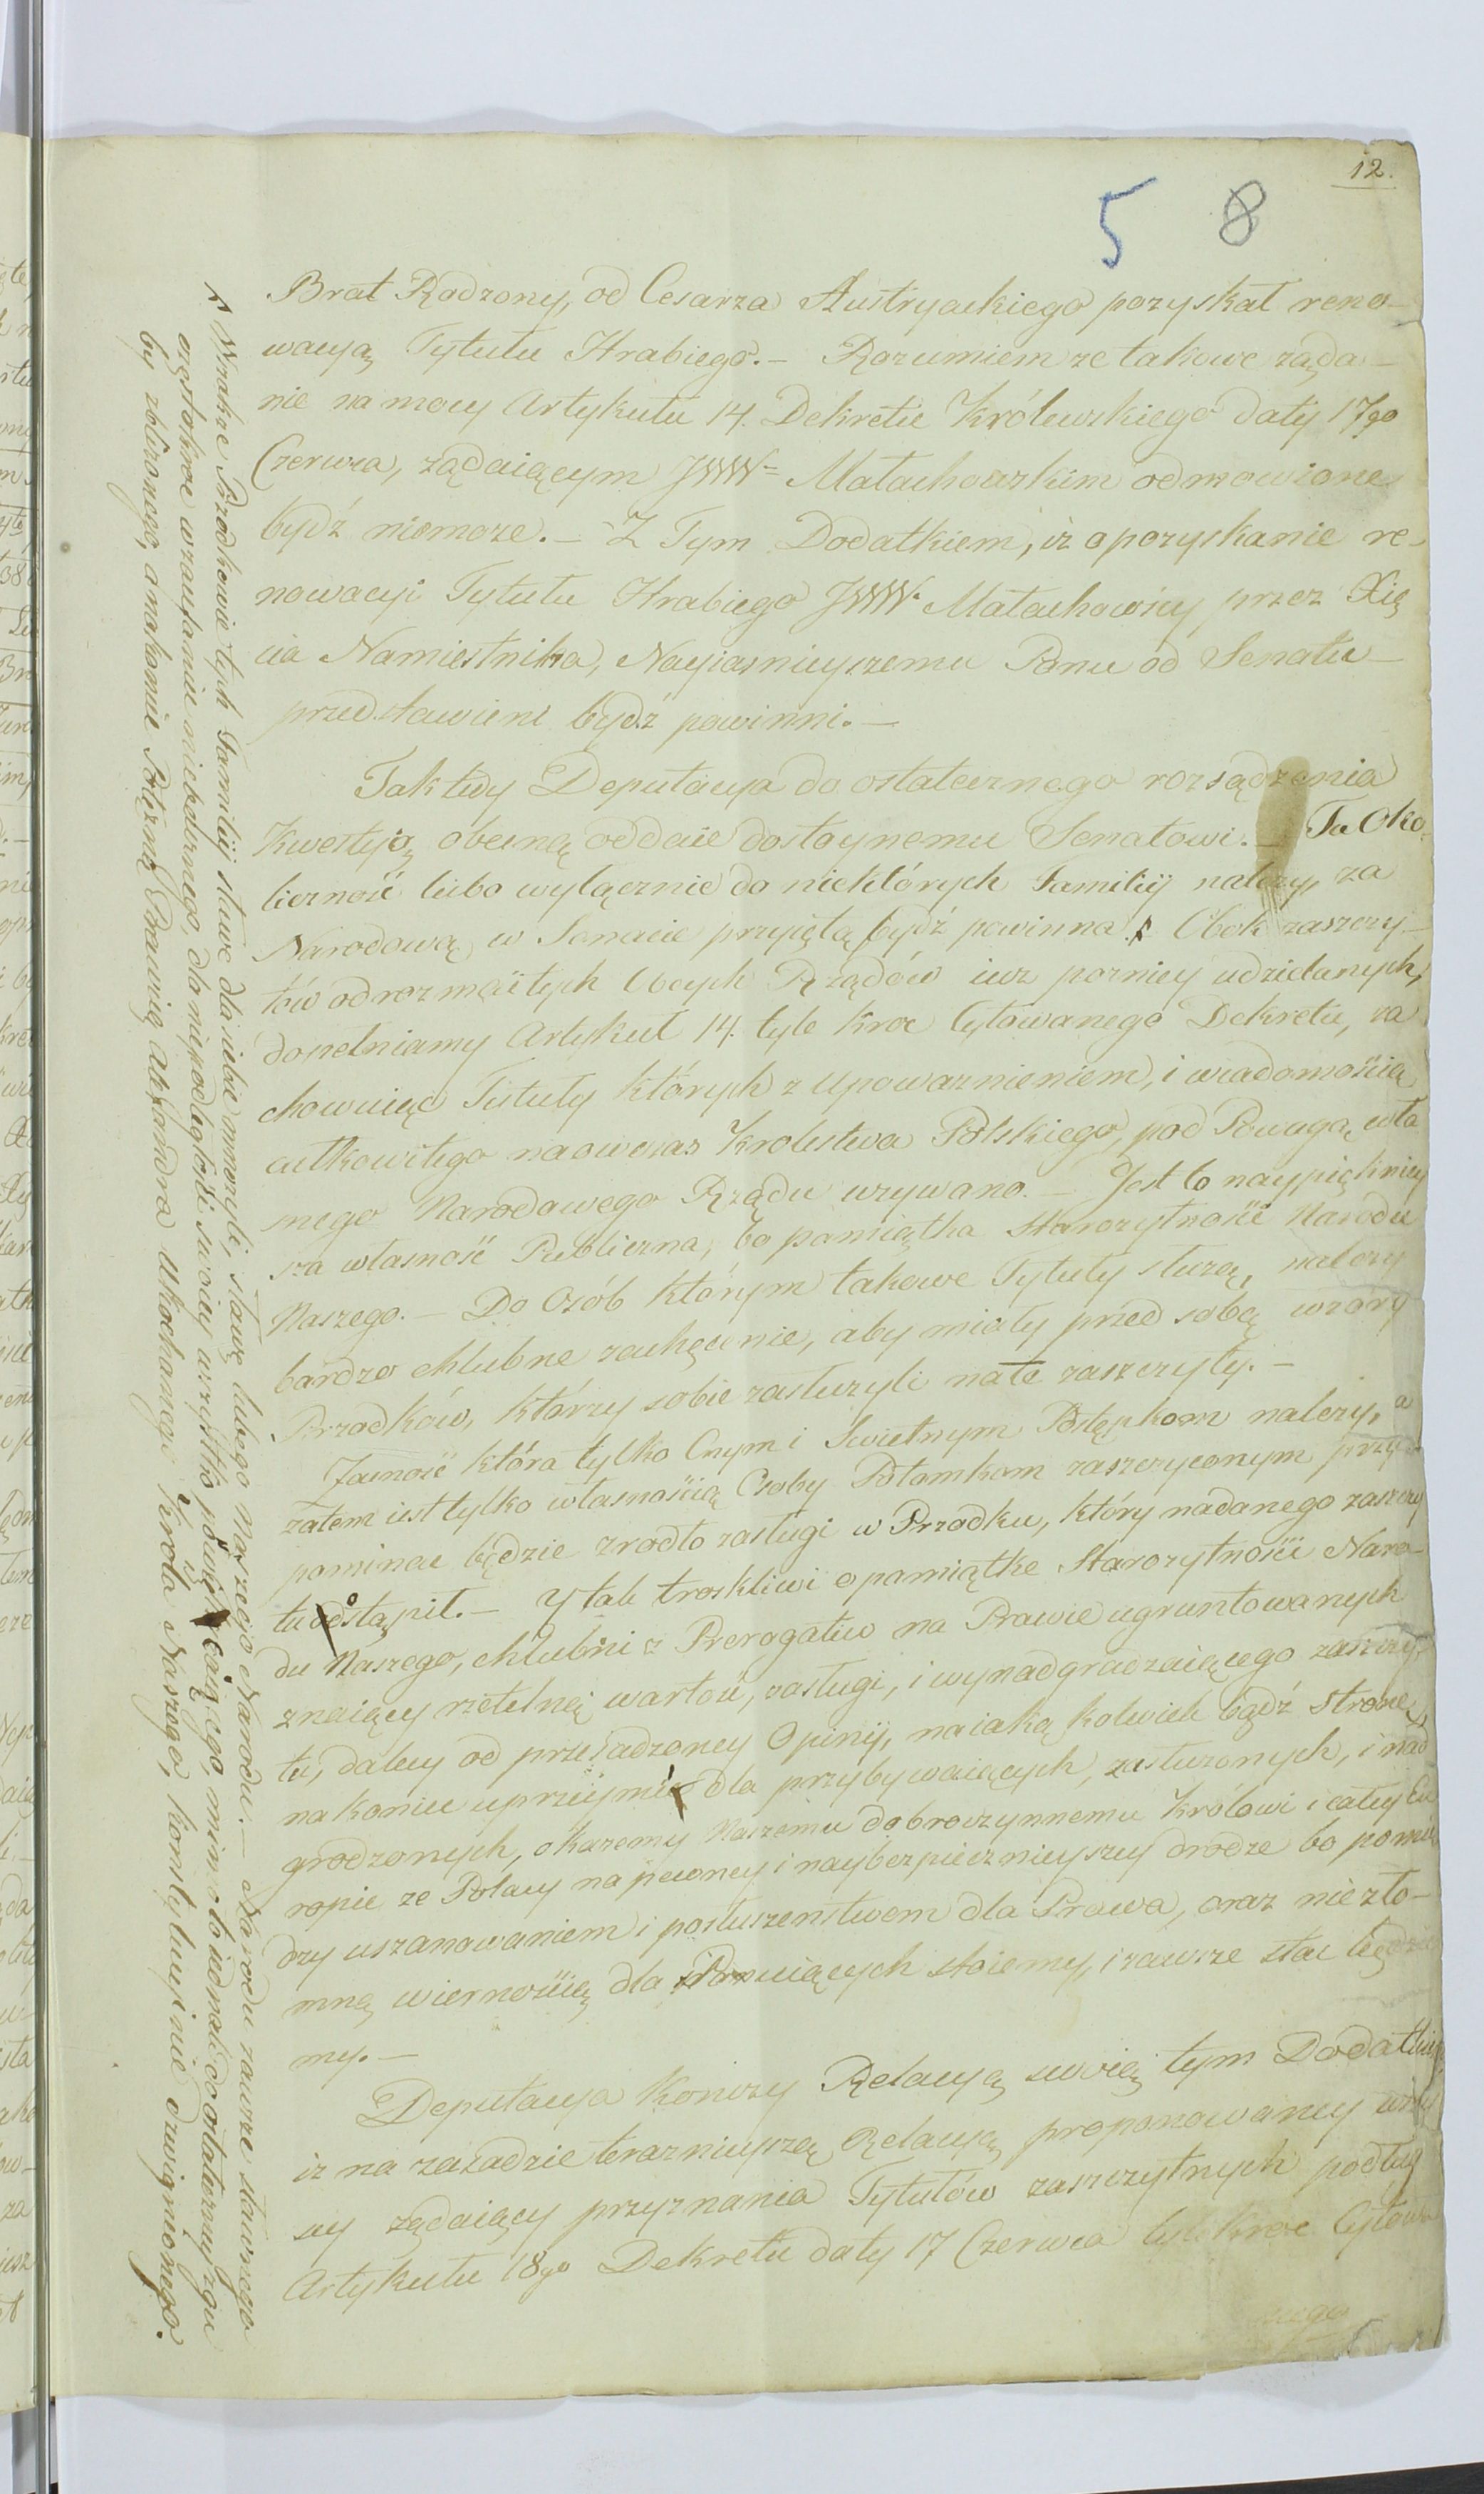 12.
5 8
Brat Rodzony, od Cesarza Austryackiego pozyskał reno-
wacyą Tytułu Hrabiego. – Rozumiem ze takowe żąda-
nie na mocy Artykułu 14. Dekretu Królewskiego daty 17go
Czerwca, żądaiącym JWW= Małachowskim odmowione
bydź niemoze. – Z Tym Dodatkiem, iż o pozyskanie re-
nowacyi Tytułu Hrabiego JWW. Małachowscy, przez Xię
cia Namiestnika, Nayiasnieyszemu Panu od Senatu
przedstawieni bydź powinni. –
Tak tedy Deputacya do ostatecznego rozsądzenia
Kwestyią obecną oddaie dostoynemu Senatowi. – Ta Oko-
liczność lubo wyłącznie do niektórych Familiy należy, za
Narodową w Senacie przyiętą bydź powinna. Obok zaszczy-
tów od rozmaitych Obcych Rządów iuz pozniey udzielanych,
dopełniamy Artykuł 14. tyle kroc cytowanego Dekretu, za
chowuiąc Tytuły których z Upowaznieniem, i wiadomością
całkowitego naowczas Krolestwa Polskiego, pod Powagą wła
snego Narodowego Rządu uzywano. – Jest to naypiękniey
sza własność Publiczna, bo pamiątka Starozytności Narodu
Naszego. – Do Osób którym takowe Tytuły służą, nalezy
bardzo chlubne zachęcenie, aby miały przed sobą wzory
Przodków, którzy sobie zasłuzyli na te zaszczyty. –
Jasność która tylko Cnym i Swietnym Postępkom nalezy, a
zatem iest tylko własnością Osoby Potomkom zaszczyconym przy
pominac będzie zrodło zasługi w Przodku, który nadanego zaszczy
tu dostąpił. – Y tak troskliwi o pamiątke Starozytności Naro-
du Naszego, chlubni z Prerogatiw na Prawie ugruntowanych
znaiący rzetelną wartość, zasługi, i wynadgradzaiącego zaszczy-
tu, dalecy od przesadzoney Opinij, na iaką kolwiek bądź stronę,
nakoniec uprzeymi dla przybywaiących, zasłuzonych, i nad
grodzonych, okażemy Naszemu dobroczynnemu Królowi i całey Eu
ropie ze Polacy na pewney i naybezpiecznieyszey drodze bo pomię
dzy uszanowaniem i posłuszeństwem dla Prawa, oraz niezło-
mną wiernością dla Panuiących stoiemy, i zawsze stac będzie
my. –
Deputacya konczy Relacyą swoią tym Dodatkiem
iz na zasadzie terazniejszej Relacyą proponowaney wszy
scy żądaiący przyznania Tytułów zaszczytnych podług
Artykułu 18go Dekretu daty 17 Czerwca tyle kroc Cytowa
nego
Wszakze Przodkowie tych Familiy sławe dla siebie mnozyli, sławę lubego Naszego Narodu. – Narodu zawsze sławnego
częstokroc w zaufaniu niebacznego, dla niepodległości swoiey wszystko poświęcaiącego, mimo to iednak do ostatecznego zgu
by zblizonego, a nakonie Potęzną Prawicą Alexandra Ukochanego Krola Naszego, konstytucyinie dzwignionego.